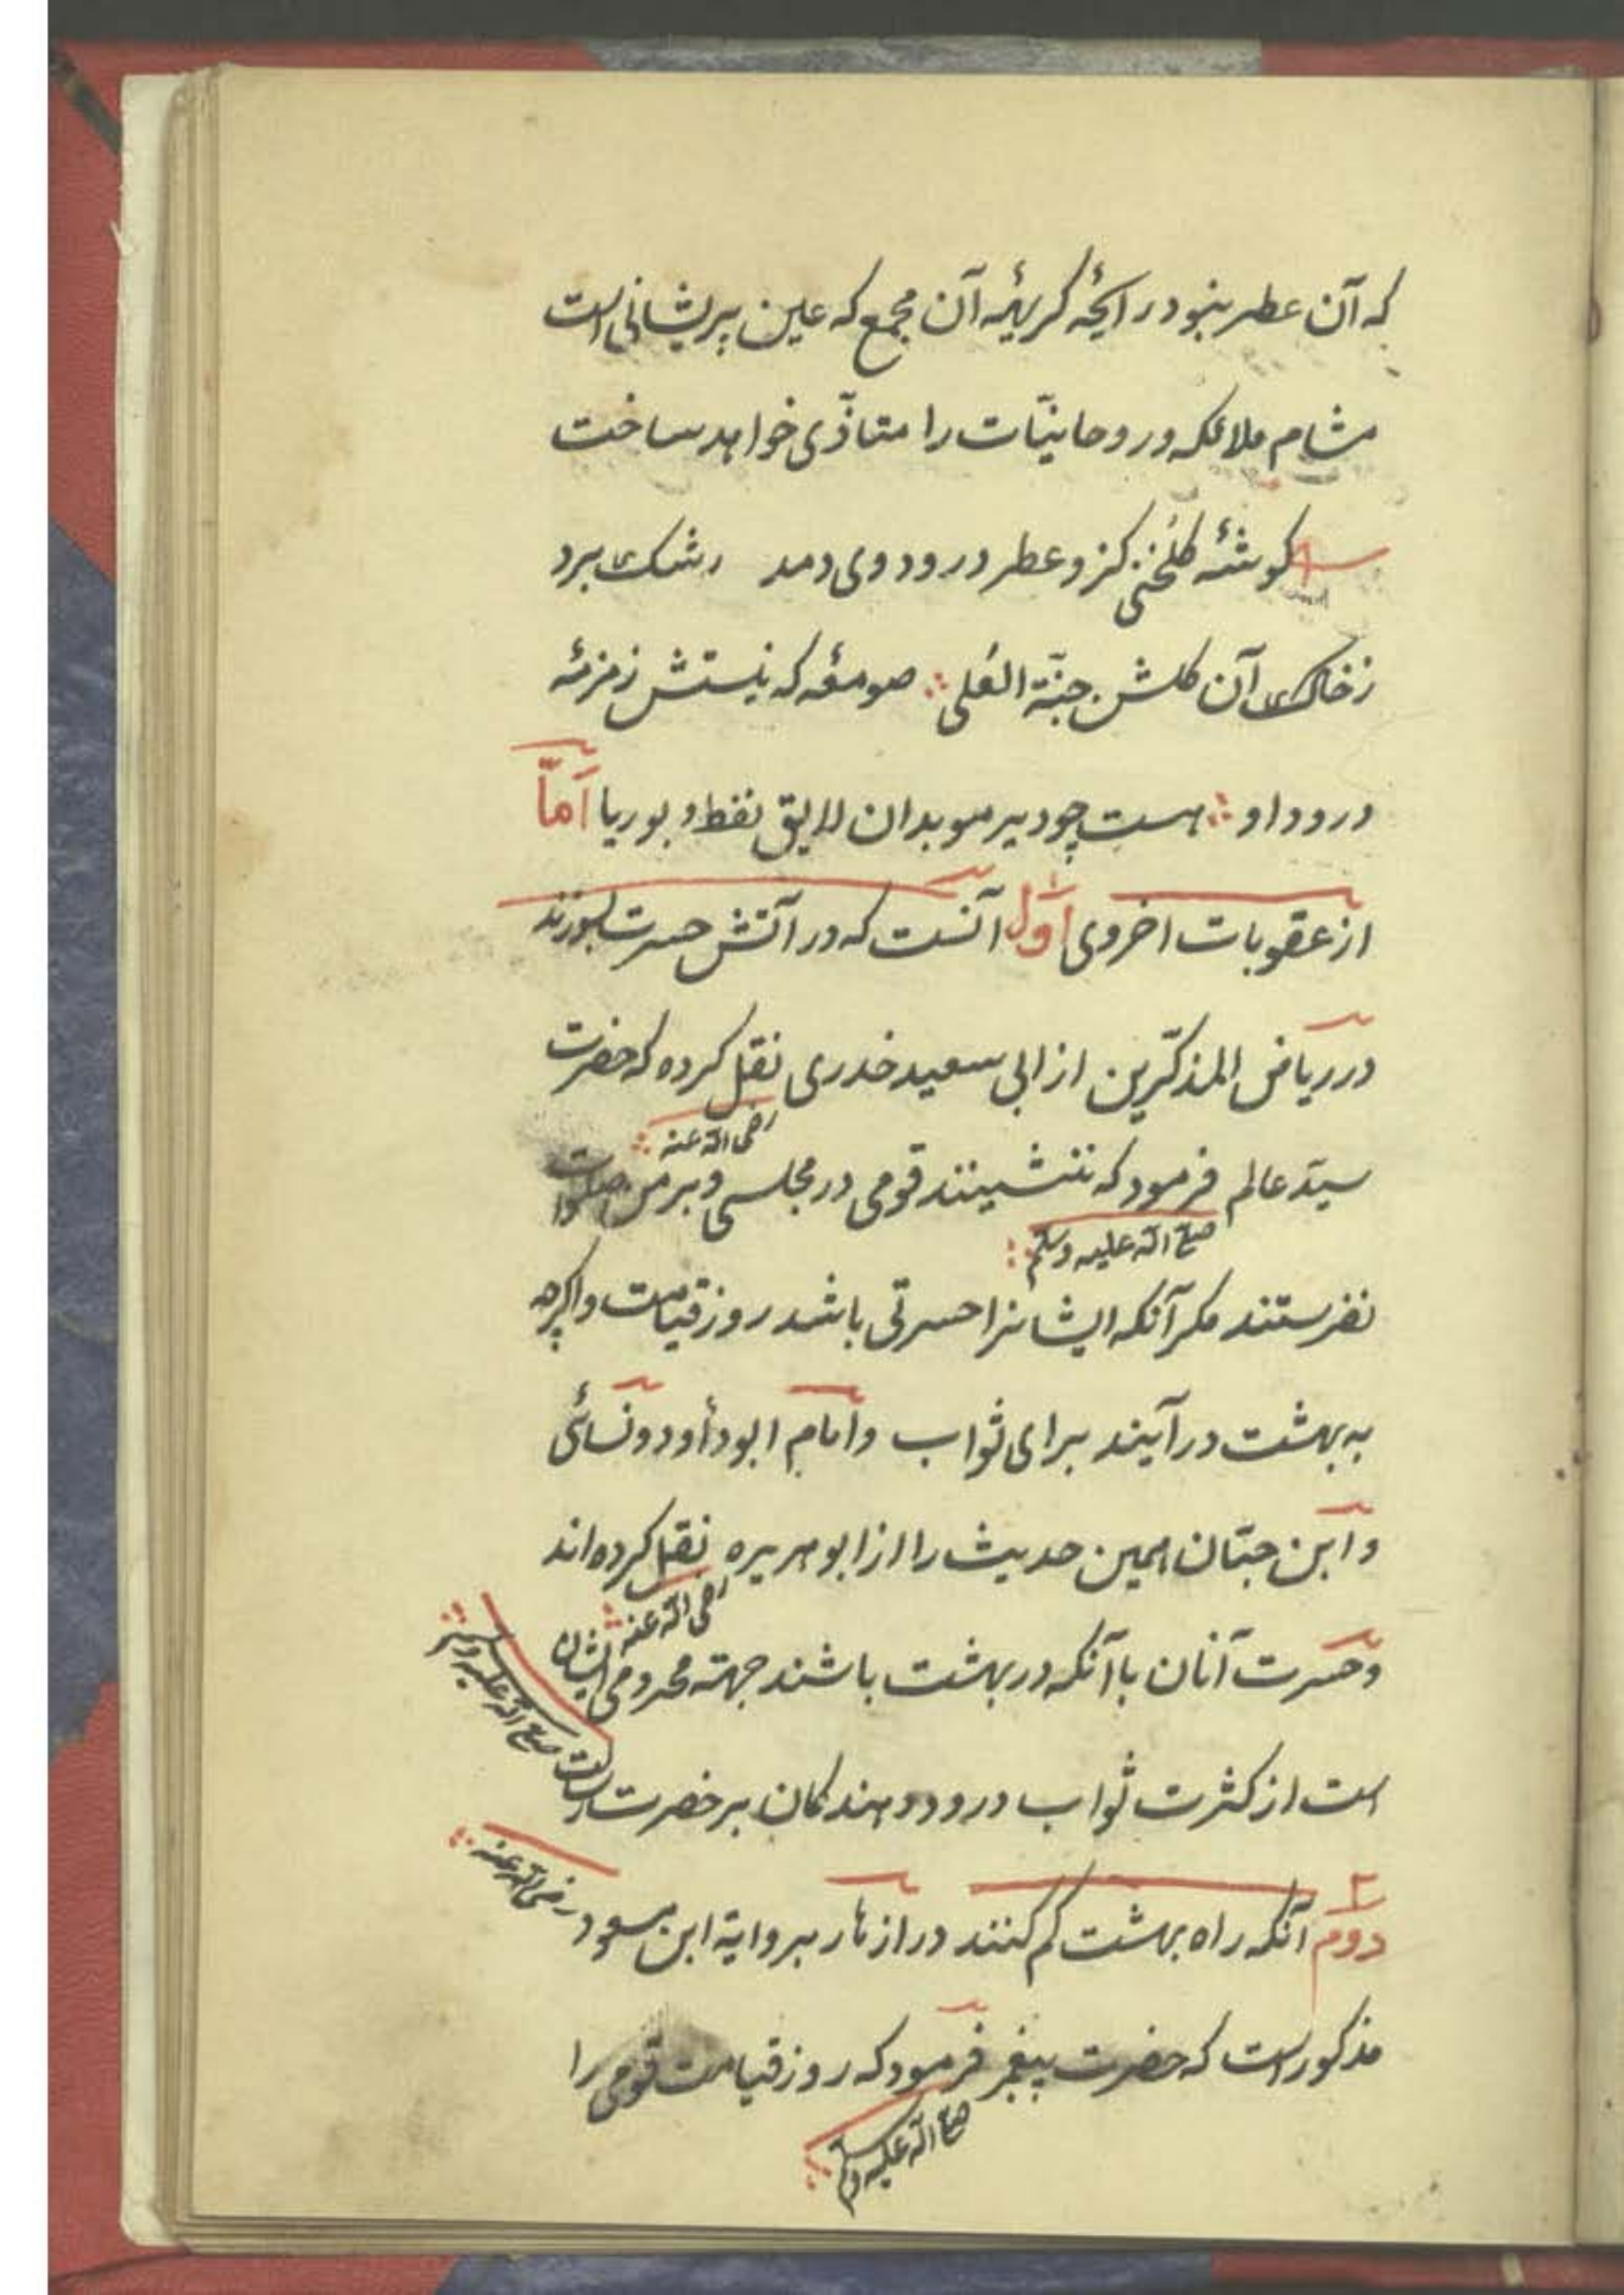 که آن عطر بنود رایحهٔ کریههٔ آن مجمع که عین پریشانی است
مشام ملائکه و روحانیّات را متاذّی خواهد ساخت
کوشهٔ کلُخنی کزو عطر درود وی دمد رشک برد
زخاک آن کلشن جنّة العُلی صومعهٔ که نیستش زمزمهٔ
درود او هست چو دیر موبدان لایق نفط و بوریا امّا
از عقوبات اخروی اوّل آنست که در آتش حسرت بسوزند
در ریاض المذکّرین از ابی سعید خدری نقل کرده که حضرت
رضی الله عنه
سیّد عالم فرمود که ننشینند قومی در مجلسی و بر من صلوات
صلی الله علیه وسلم
نفرستند مکر آنکه ایشانرا حسرتی باشد روز قیامت و اکرچه
به بهشت درآیند برای ثواب و امام ابو دأود و نسائی
و ابن حبّان همین حدیث را از ابو هریره نقل کرده اند
رضی الله عنه
و حسرت آنان با آنکه در بهشت باشند جهته محرومی ایشان
است از کثرت ثواب درود دهندکان بر حضرت رسالت صلی الله علیه وسلم
۲
دوم آنکه راه بهشت کم کنند در ازهار بروایة ابن مسعود رضی الله عنه
مذکور است که حضرت پیغمبر فرمود که روز قیامت قومی را
صلی الله علیه وسلم